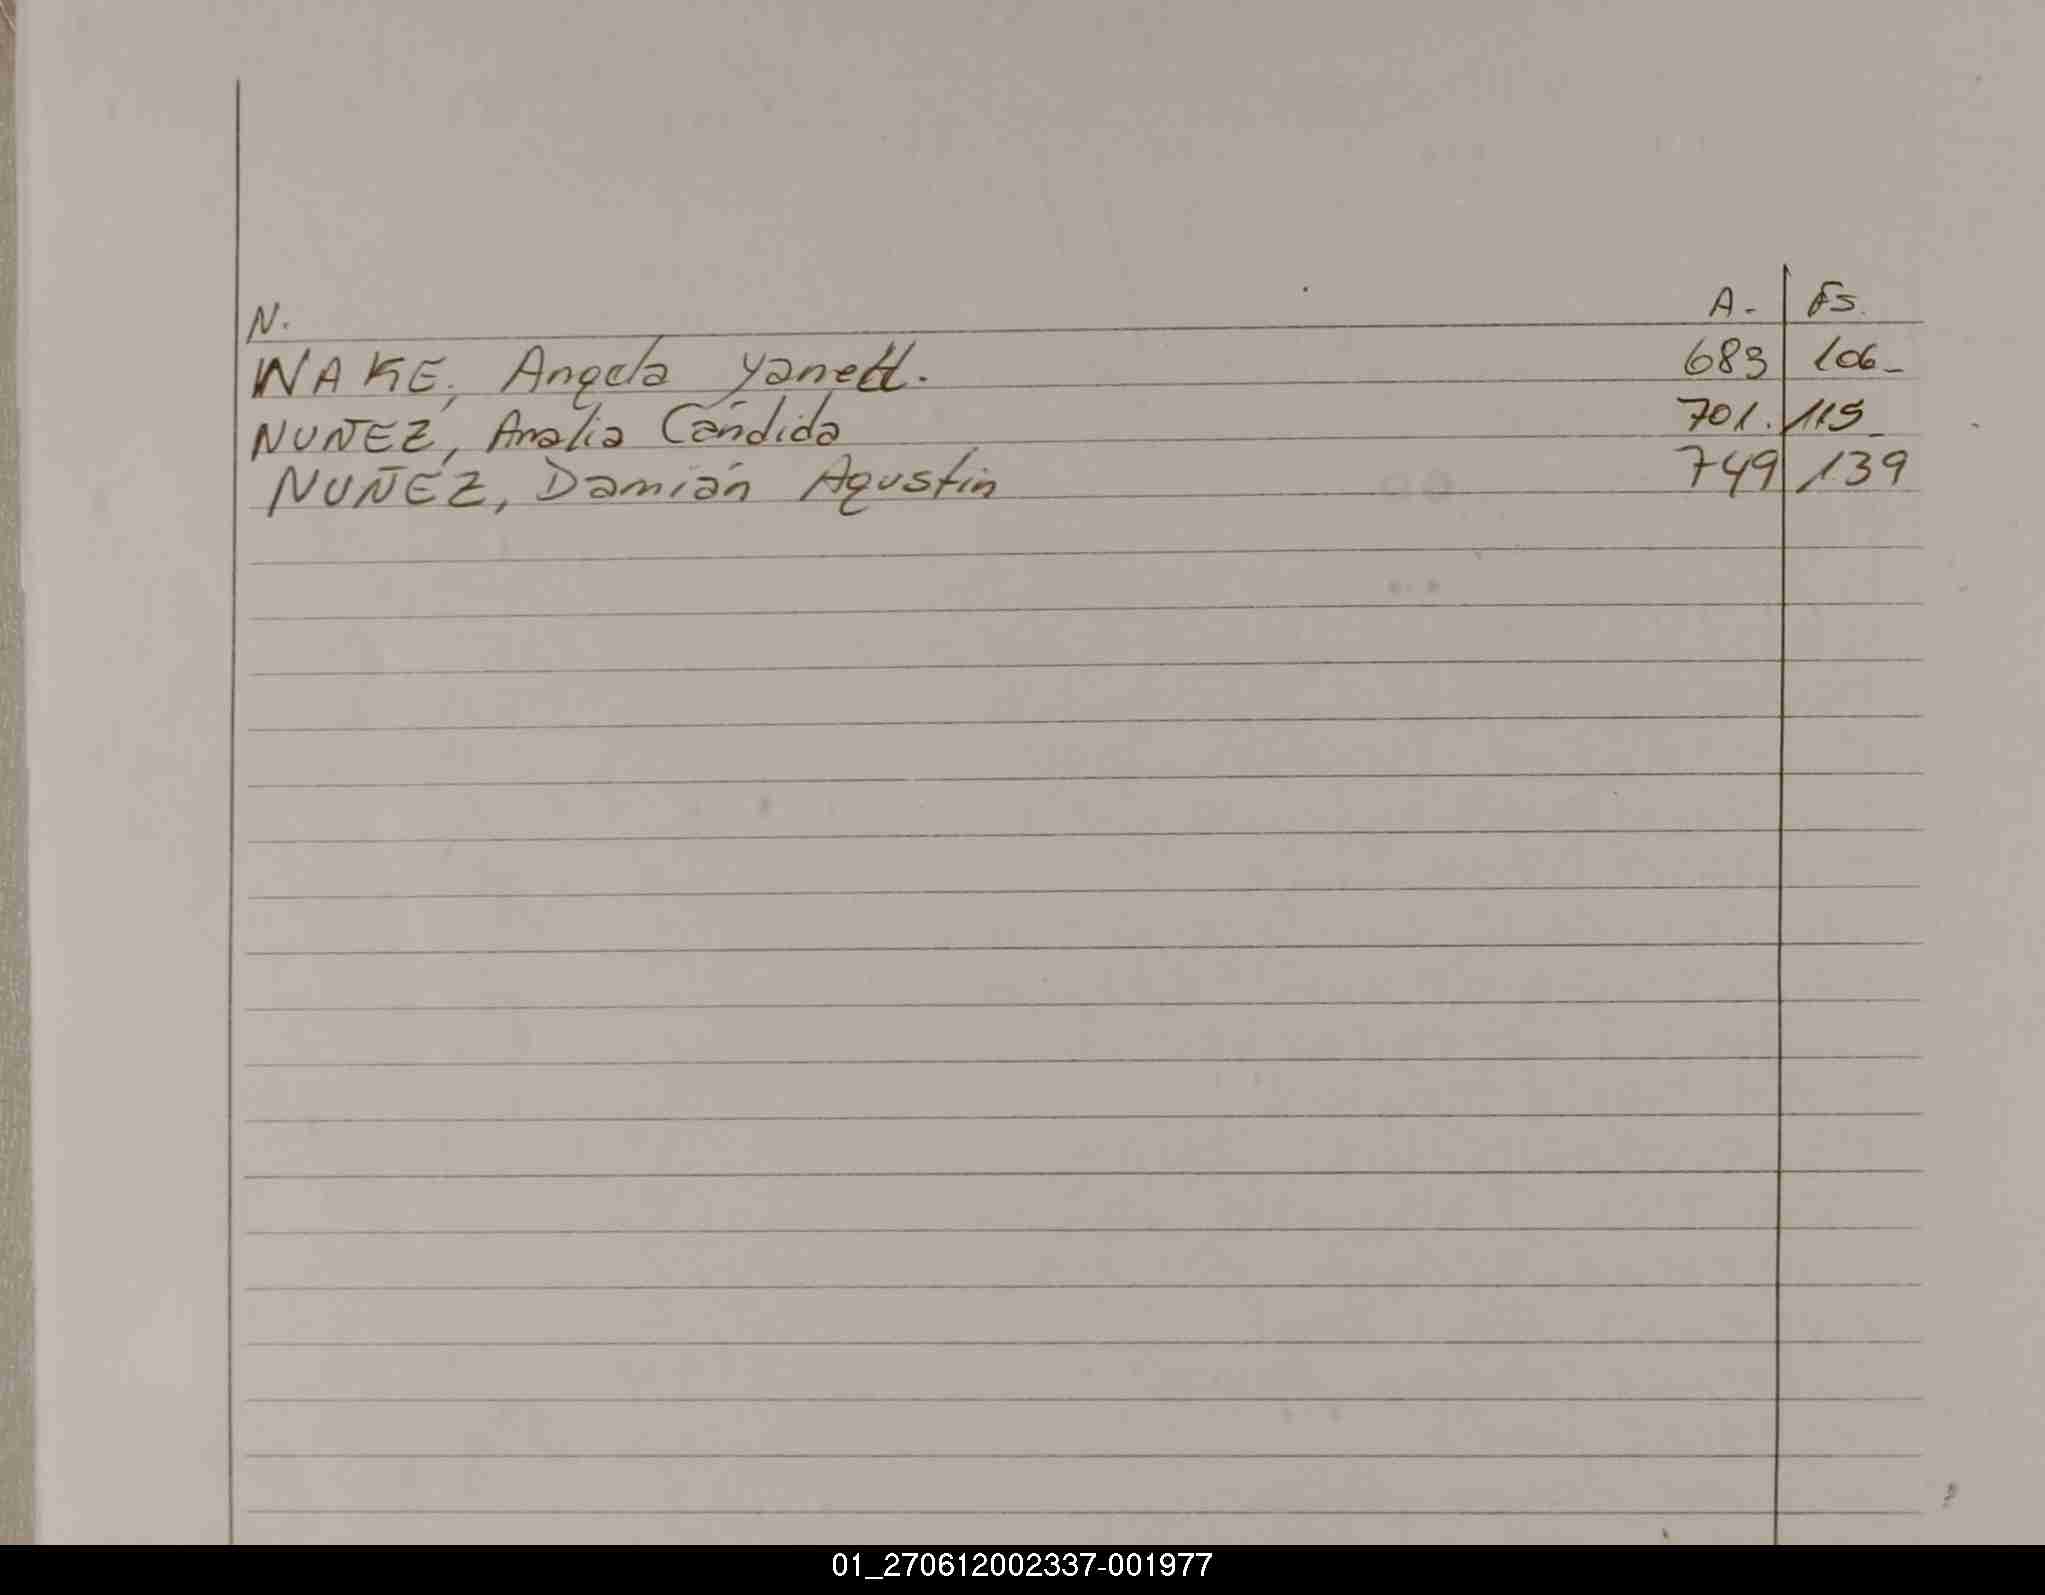 N. A. Fs.
WAKE, Angela Yanett. 683 106
NUÑEZ, Analia Cándida 701. 115
NUÑEZ, Damián Agustin 749 139
01_270612002337-001977